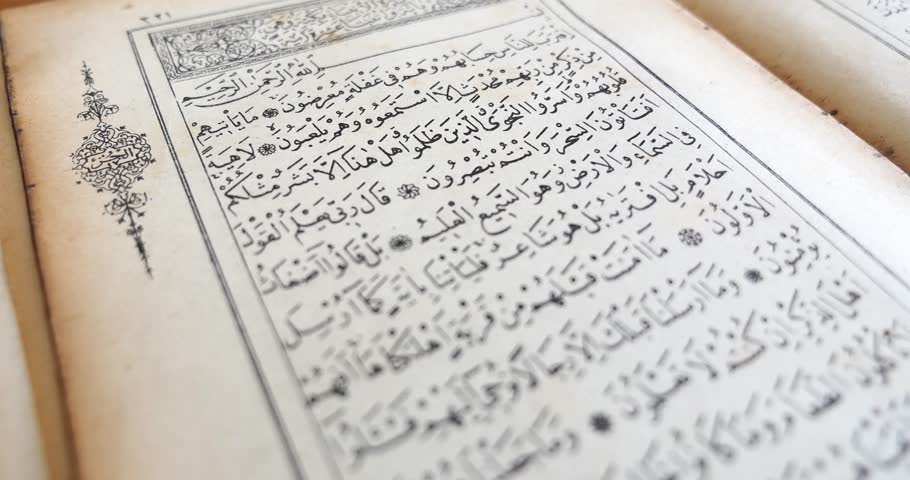 ٣٢١
بِسْمِ اللّٰهِ الرَّحْمٰنِ الرَّحِيمِ
اِقْتَرَبَ لِلنَّاسِ حِسَابُهُمْ وَهُمْ فِى غَفْلَةٍ مُعْرِضُونَ ۝ مَا يَأْتِيهِمْ
مِنْ ذِكْرٍ مِنْ رَبِّهِمْ مُحْدَثٍ اِلَّا اسْتَمَعُوهُ وَهُمْ يَلْعَبُونَ ۝ لَاهِيَةً
قُلُوبُهُمْ وَاَسَرُّوا النَّجْوَى الَّذِينَ ظَلَمُوا هَلْ هٰذَا اِلَّا بَشَرٌ مِثْلُكُمْ
اَفَتَأْتُونَ السِّحْرَ وَاَنْتُمْ تُبْصِرُونَ ۝ قَالَ رَبِّى يَعْلَمُ الْقَوْلَ
فِى السَّمَاءِ وَالْاَرْضِ وَهُوَ السَّمِيعُ الْعَلِيمُ ۝ بَلْ قَالُوا اَضْغَاثُ
اَحْلَامٍ بَلِ افْتَرٰيهُ بَلْ هُوَ شَاعِرٌ فَلْيَأْتِنَا بِاٰيَةٍ كَمَا اُرْسِلَ
الْاَوَّلُونَ ۝ مَا اٰمَنَتْ قَبْلَهُمْ مِنْ قَرْيَةٍ اَهْلَكْنَاهَا اَفَهُمْ
يُؤْمِنُونَ ۝ وَمَا اَرْسَلْنَا قَبْلَكَ اِلَّا رِجَالًا نُوحِى اِلَيْهِمْ فَسْئَلُوا
اَهْلَ الذِّكْرِ اِنْ كُنْتُمْ لَا تَعْلَمُونَ ۝ وَمَا جَعَلْنَاهُمْ
يَأْكُلُونَ الطَّعَامَ وَمَا كَانُوا